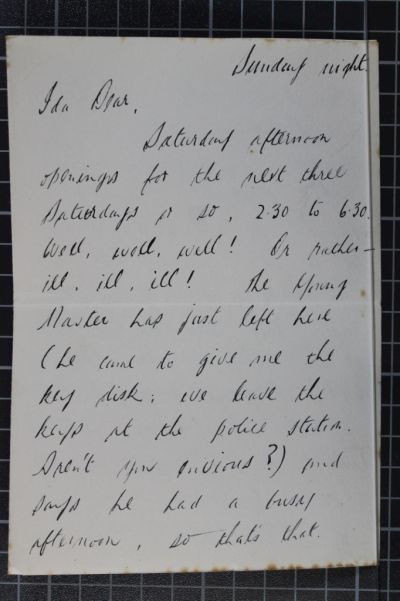 Sunday night.
Ida Dear,
Saturday afternoon
openings for the next three
Saturdays or so, 2.30 to 6.30.
Well, well, well! Or rather—
ill, ill, ill! The Young
Master has just left here
(he came to give me the
key disk; we leave the
keys at the police station.
Aren't you envious?) and
says he had a busy
afternoon, so that's that.